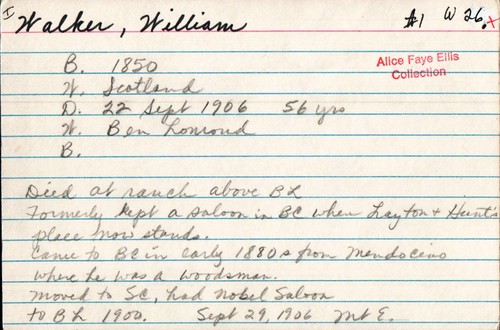 I
Walker, William #1 W 26. x
Alice Faye Ellis
Collection
B. 1850
W. Scotland
D. 22 Sept 1906 56 yrs
W. Ben Lomond
B.
Died at ranch above BL
Formerly kept a saloon in BC when Layton & Hunt's
place now stands.
Came to BC in early 1880s from Mendocino
where he was a woodsman.
Moved to SC, had Nobel Saloon
to BL 1900. Sept 29, 1906 Mt E.